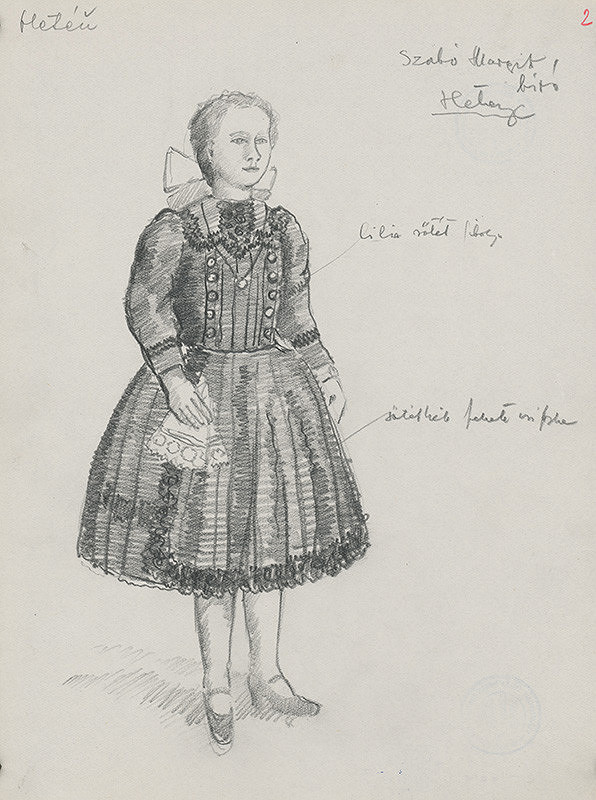 Hetén
2
Szabó Margit,
bíró
Hetény
lilia sötét
sötétkék fekete csipke